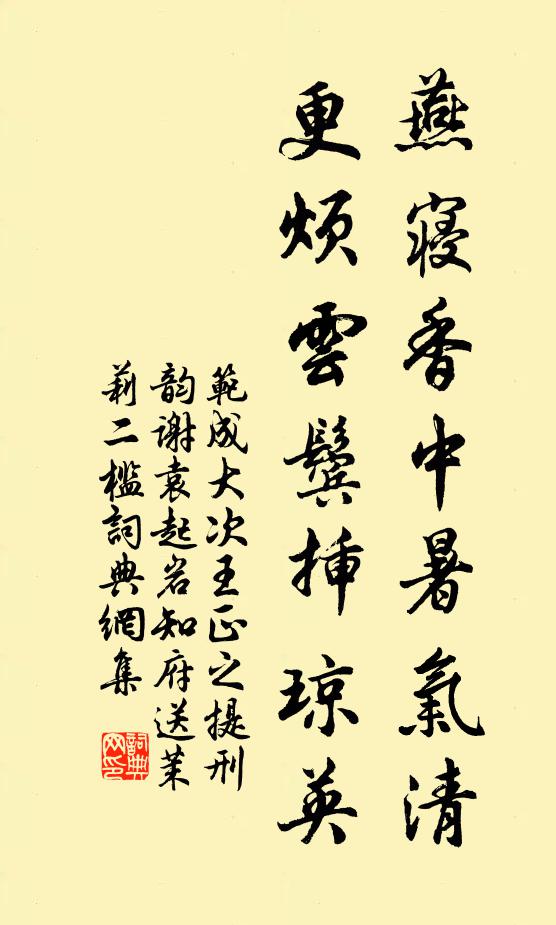 燕寢香中暑氣清
更煩雲鬢插瓊英
範成大次王正之提刑
韵謝袁起岩知府送茉
莉二檻詞典網集
詞典網印